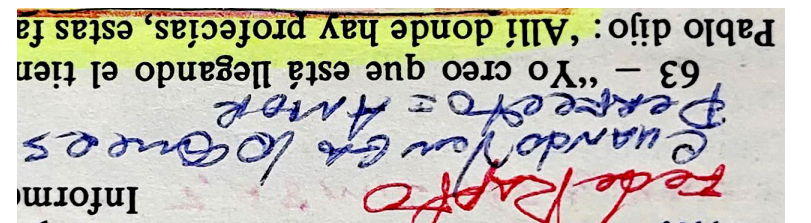 Fe de Rapto Inform
Cuando Venga lo Que es
Perfecto = Amor
63 — “Yo creo que está llegando el tiem
Pablo dijo: ‘Allí donde hay profecías, estas fa